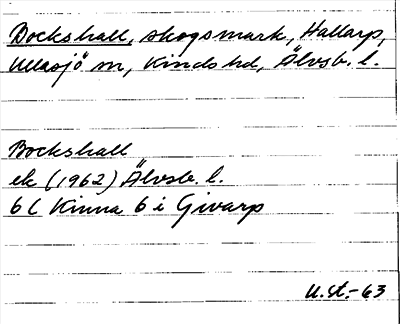 Bockshall, skogsmark, Hallarp,
Ullasjö sn, Kinds hd, Älvsb. l.
Bockshall
ek (1962) Älvsb. l.
6C Kinna 6 i Givarp
U.St.-63